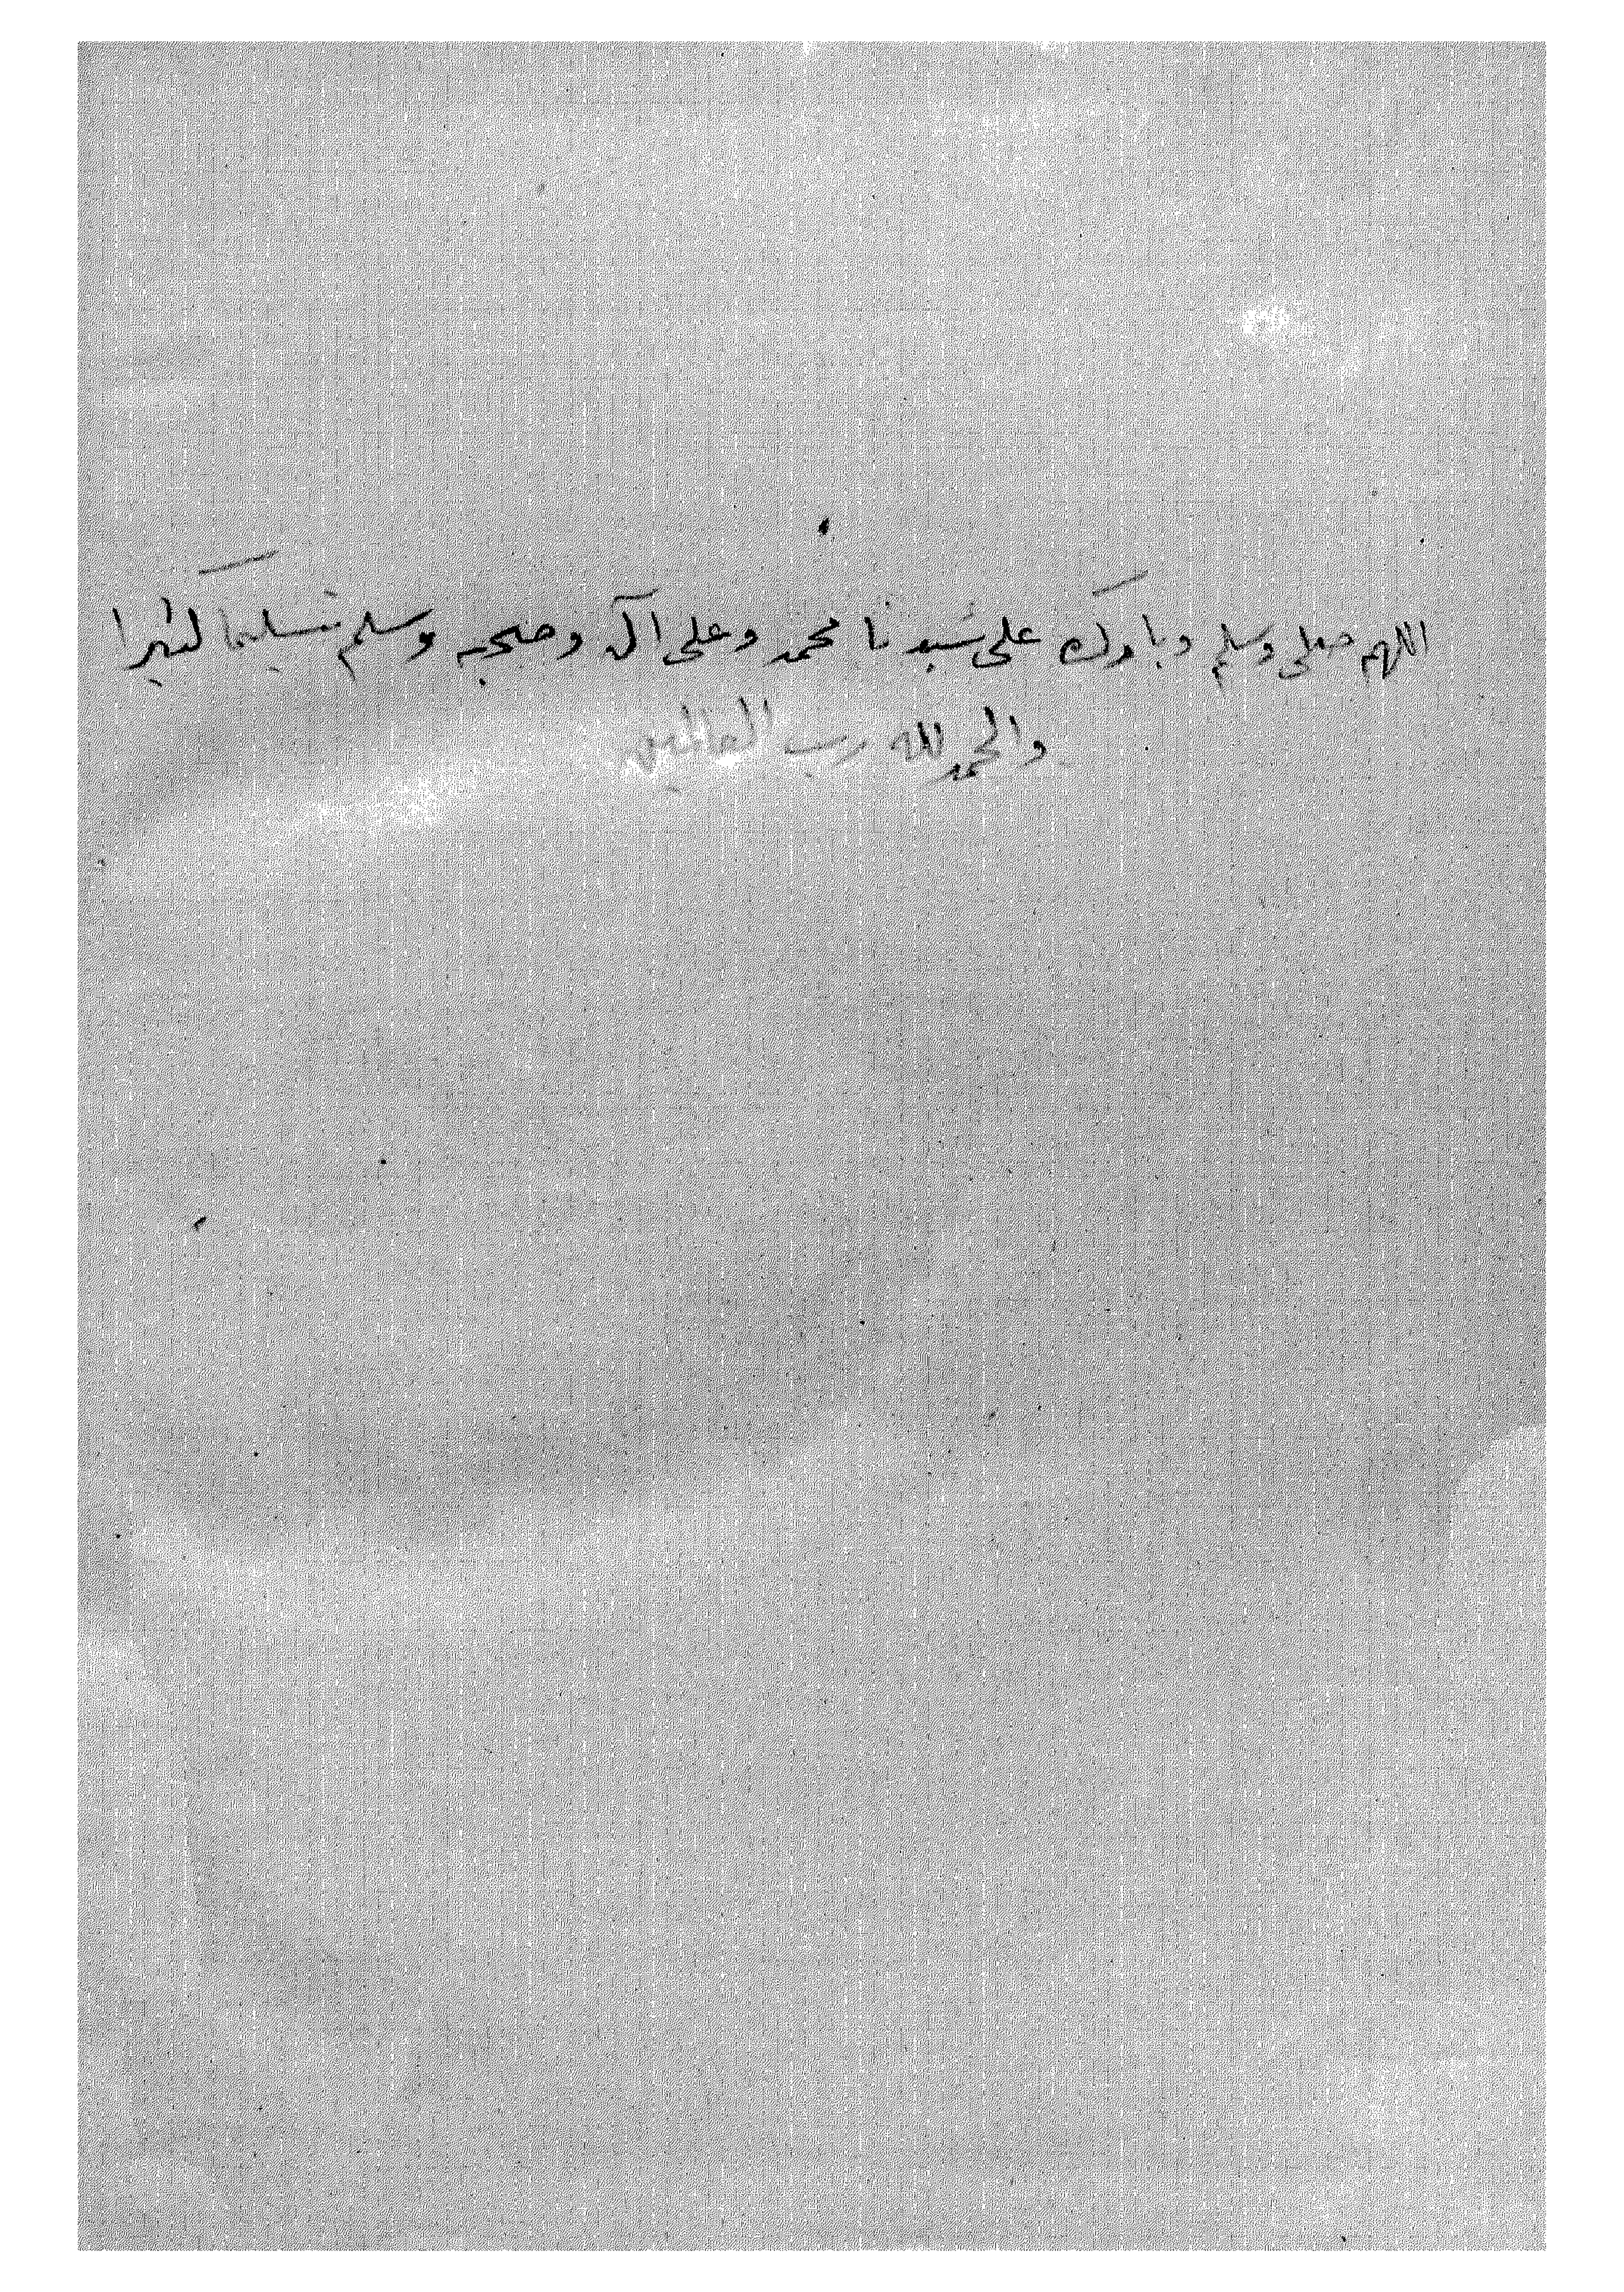 اللهم صلى وسلم وبارك على سيدنا محمد وعلى آل وصحبه وسلم تسليما كثيرا
والحمد لله رب العالمين